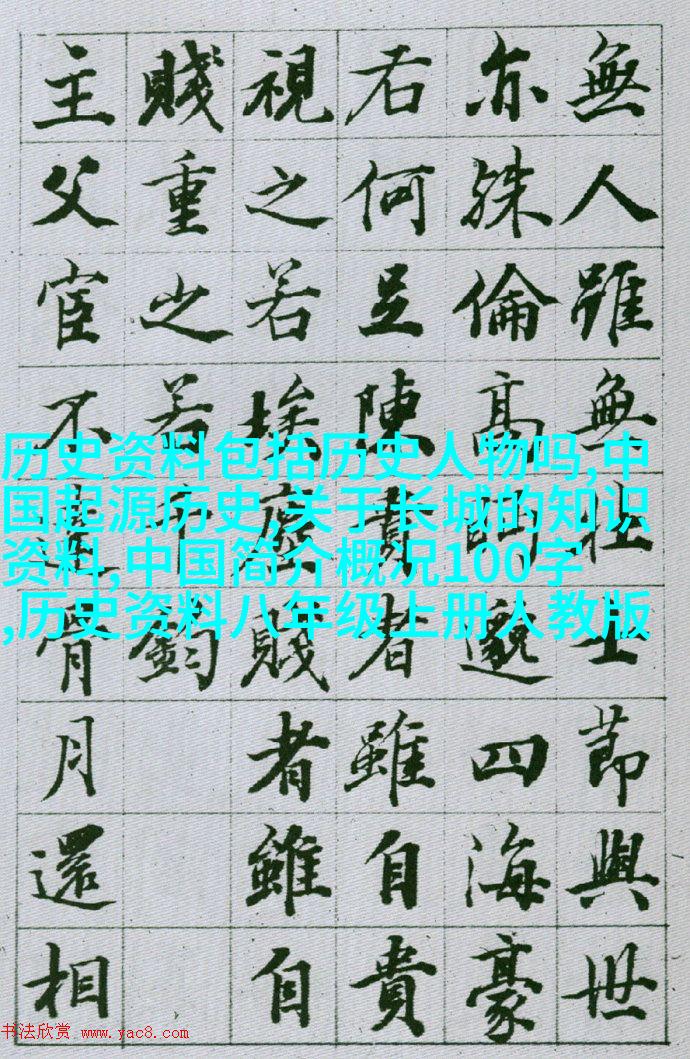 無人雖無壯士節與世
亦殊倫高眄邈四海豪
右何足陳貴者雖自貴
視之若埃塵賤者雖自
賤重之若千鈞
主父宦不達骨月還相
历史资料包括历史人物吗,中
国起源历史,关于长城的知识
资料,中国简介概况100字
,历史资料八年级上册人教版
书法欣赏 www.yac8.com